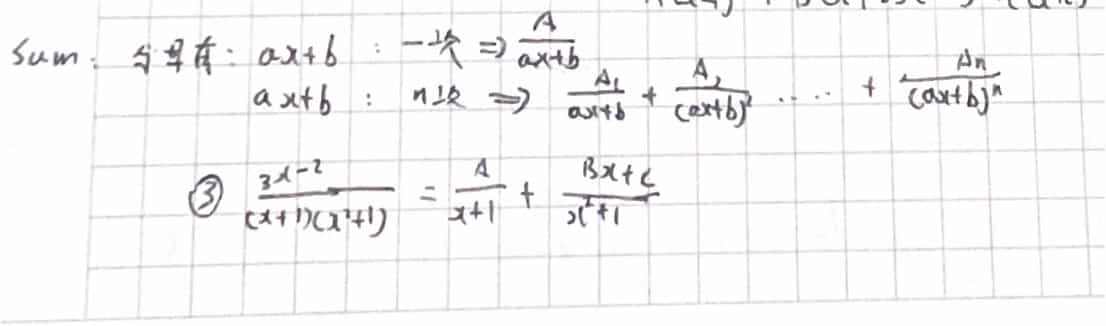 Sum: 分母有: ax+b : 一次 ⇒ A/(ax+b)
ax+b : n次 ⇒ A₁/(ax+b) + A₂/(ax+b)² ..... + Aₙ/(ax+b)ⁿ
③ (3x-2)/((x+1)(x²+1)) = A/(x+1) + (Bx+C)/(x²+1)